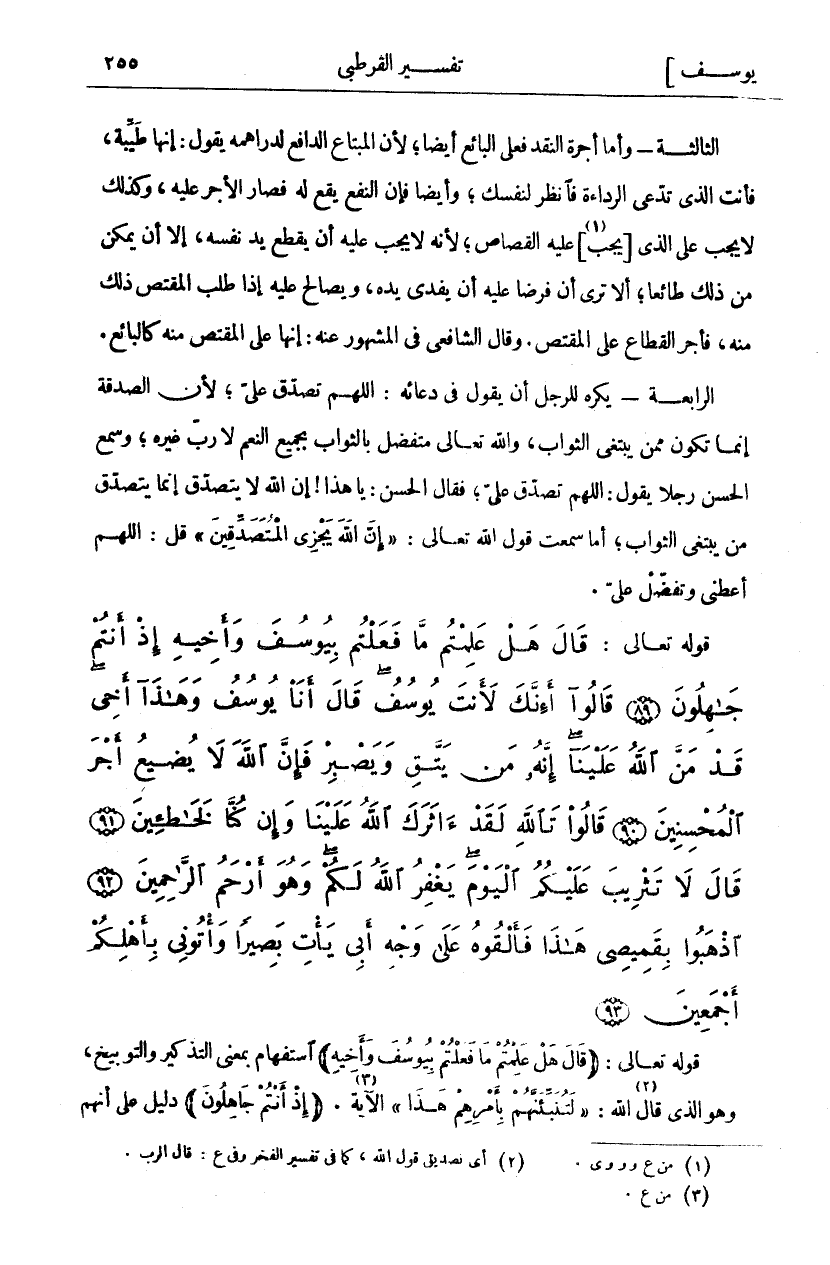 يوسف ]
تفسير القرطبى
٢٥٥
الثالثة – وأما أجرة النقد فعلى البائع أيضا؛ لأن المبتاع الدافع لدراهمه يقول: إنها طَيِّبة،
فأنت الذى تدّعى الرداءة فآنظر لنفسك؛ وأيضا فإن النفع يقع له فصار الأجر عليه، وكذلك
لا يجب على الذى [يجب](١) عليه القصاص؛ لأنه لا يجب عليه أن يقطع يد نفسه، إلا أن يمكن
من ذلك طائعا؛ ألا ترى أن فرضا عليه أن يفدى يده، ويصالح عليه إذا طلب المقتص ذلك
منه، فأجر القطاع على المقتص. وقال الشافعى فى المشهور عنه: إنها على المقتص منه كالبائع.
الرابعة – يكره للرجل أن يقول فى دعائه: اللهم تصدّق علىّ؛ لأن الصدقة
إنما تكون ممن يبتغى الثواب، والله تعالى متفضل بالثواب بجميع النعم لا ربّ غيره؛ وسمع
الحسن رجلا يقول: اللهم تصدّق علىّ؛ فقال الحسن: يا هذا! إن الله لا يتصدّق إنما يتصدّق
من يبتغى الثواب؛ أما سمعت قول الله تعالى: «إِنَّ اللَّهَ يَجْزِى الْمُتَصَدِّقِينَ» قل: اللهم
أعطنى وتفضّلْ علىّ.
قوله تعالى: قَالَ هَلْ عَلِمْتُم مَّا فَعَلْتُم بِيُوسُفَ وَأَخِيهِ إِذْ أَنتُمْ
جَٰهِلُونَ ﴿٨٩﴾ قَالُوٓا۟ أَءِنَّكَ لَأَنتَ يُوسُفُ ۖ قَالَ أَنَا۠ يُوسُفُ وَهَٰذَآ أَخِى ۖ
قَدْ مَنَّ ٱللَّهُ عَلَيْنَآ ۖ إِنَّهُۥ مَن يَتَّقِ وَيَصْبِرْ فَإِنَّ ٱللَّهَ لَا يُضِيعُ أَجْرَ
ٱلْمُحْسِنِينَ ﴿٩٠﴾ قَالُوا۟ تَٱللَّهِ لَقَدْ ءَاثَرَكَ ٱللَّهُ عَلَيْنَا وَإِن كُنَّا لَخَٰطِـِٔينَ ﴿٩١﴾
قَالَ لَا تَثْرِيبَ عَلَيْكُمُ ٱلْيَوْمَ ۖ يَغْفِرُ ٱللَّهُ لَكُمْ ۖ وَهُوَ أَرْحَمُ ٱلرَّٰحِمِينَ ﴿٩٢﴾
ٱذْهَبُوا۟ بِقَمِيصِى هَٰذَا فَأَلْقُوهُ عَلَىٰ وَجْهِ أَبِى يَأْتِ بَصِيرًا وَأْتُونِى بِأَهْلِكُمْ
أَجْمَعِينَ ﴿٩٣﴾
قوله تعالى: ﴿قَالَ هَلْ عَلِمْتُمْ مَا فَعَلْتُمْ بِيُوسُفَ وَأَخِيهِ﴾ آستفهام بمعنى التذكير والتوبيخ،
وهو الذى قال الله(٢): «لَتُنَبِّئَنَّهُمْ بِأَمْرِهِمْ هَذَا» الآية(٣). ﴿إِذْ أَنْتُمْ جَاهِلُونَ﴾ دليل على أنهم
(١) من ع و و وى. (٢) أى تصديق قول الله، كما فى تفسير الفخر وفى ع: قال الرب.
(٣) من ع.